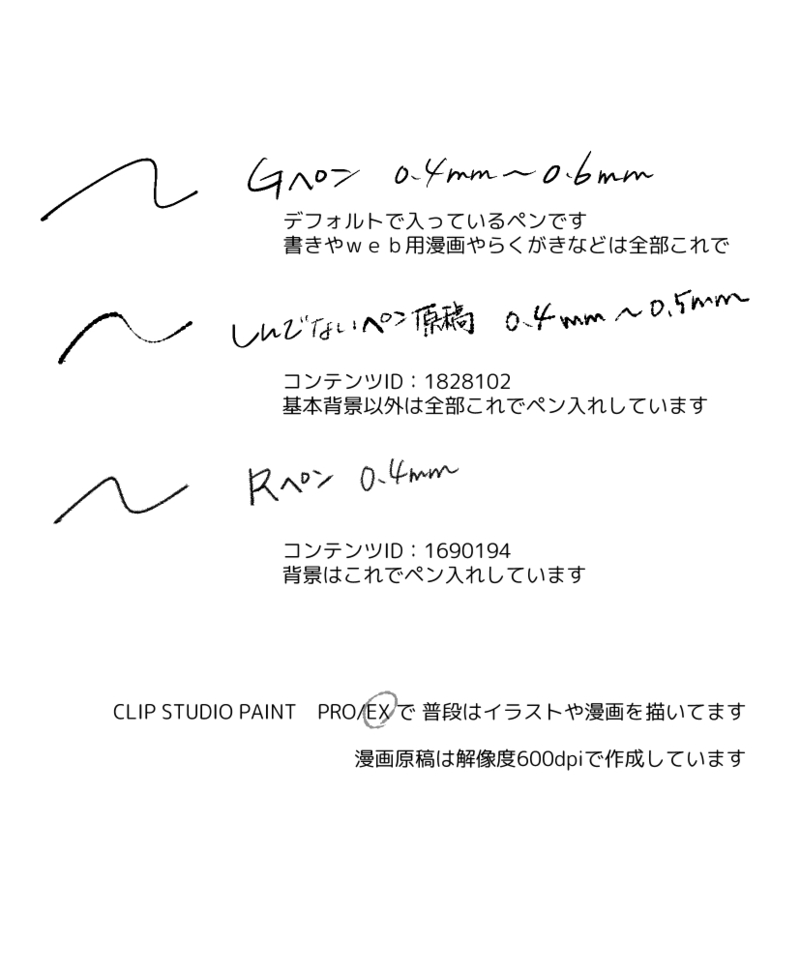 Gペン 0.4mm〜0.6mm
デフォルトで入っているペンです
書きやｗｅｂ用漫画やらくがきなどは全部これで
しんでないペン原稿 0.4mm〜0.5mm
コンテンツID：1828102
基本背景以外は全部これでペン入れしています
Rペン 0.4mm
コンテンツID：1690194
背景はこれでペン入れしています
CLIP STUDIO PAINT　PRO/EX で 普段はイラストや漫画を描いてます
漫画原稿は解像度600dpiで作成しています